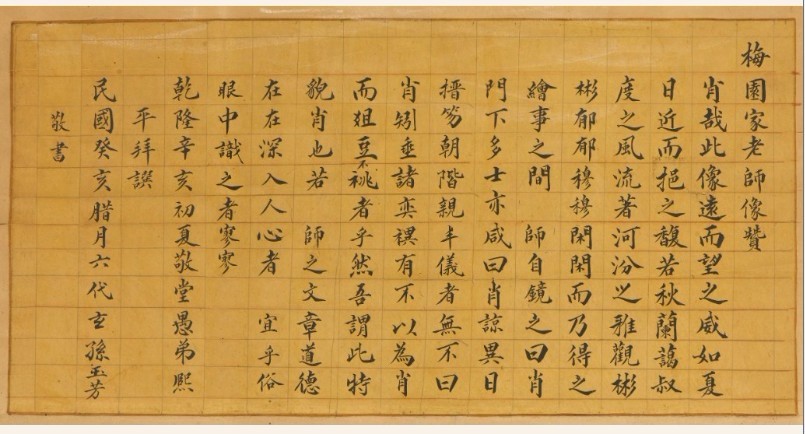 梅園家老師像贊
肖哉此像遠而望之威如夏
日近而挹之馥若秋蘭藹叔
度之風流著河汾之雅觀彬
彬郁郁穆穆閑閑而乃得之
繪事之間 師自鏡之曰肖
門下多士亦咸曰肖諒異日
搢笏朝階親丰儀者無不曰
肖矧垂諸奕禩有不以為肖
而俎豆不祧者乎然吾謂此特
貌肖也若 師之文章道德
在在深入人心者 宜乎俗
眼中識之者寥寥
乾隆辛亥初夏敬堂愚弟熙
平拜譔
民國癸亥腊月六代玄孫玉芳
敬書